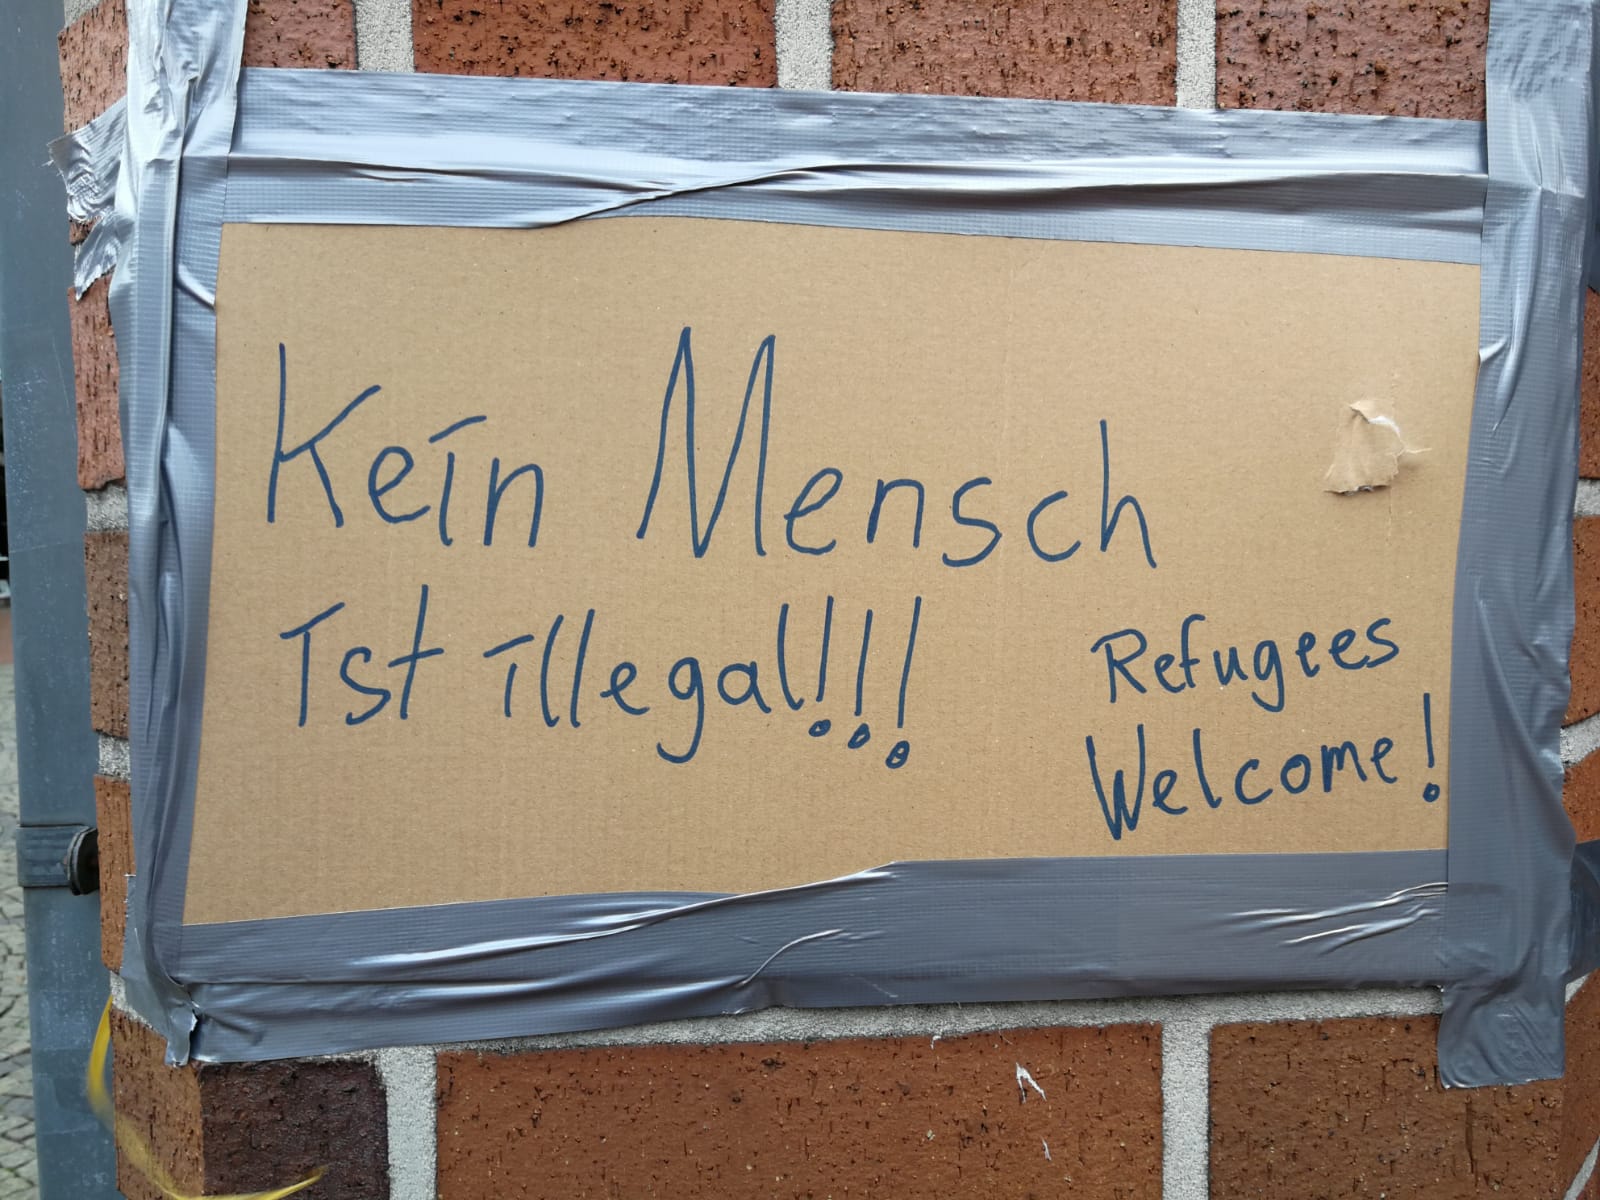 Kein Mensch
ist illegal!!!
Refugees
Welcome!